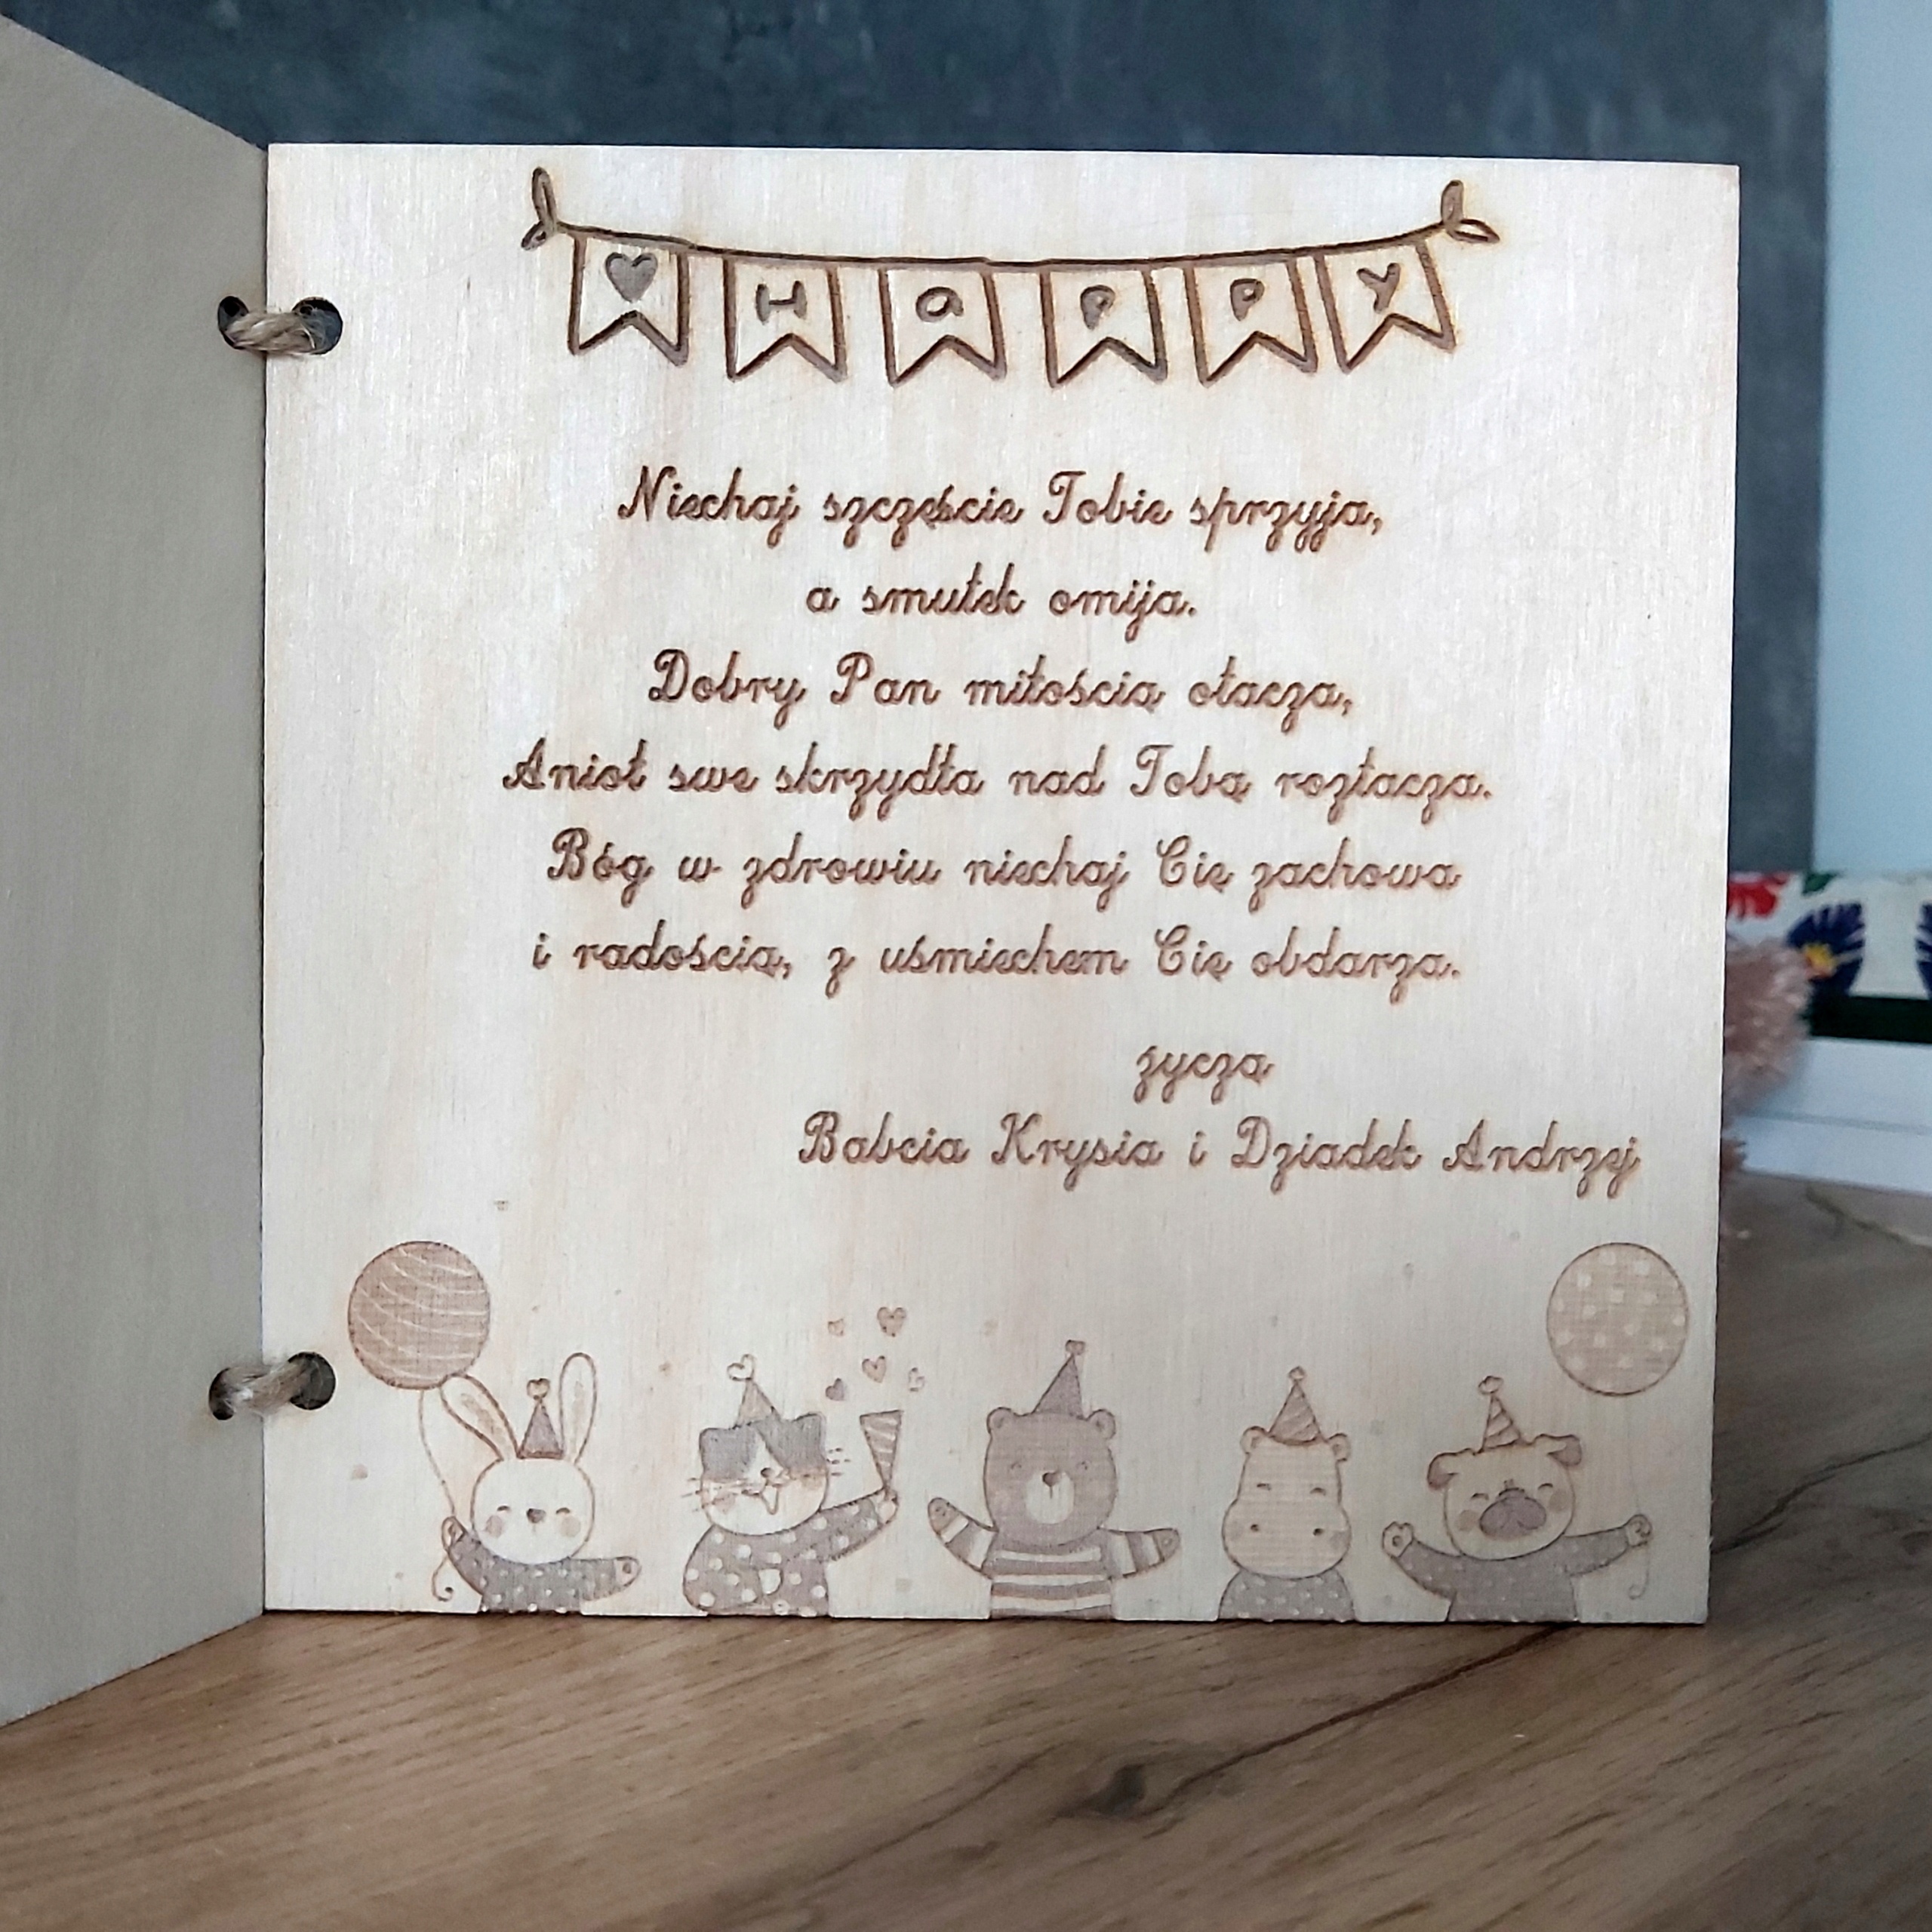 HaPPY
Niechaj szczęście Tobie sprzyja,
a smutek omija.
Dobry Pan miłością otacza,
Anioł swe skrzydła nad Tobą roztacza.
Bóg w zdrowiu niechaj Cię zachowa
i radością, z uśmiechem Cię obdarza.
życzą
Babcia Krysia i Dziadek Andrzej